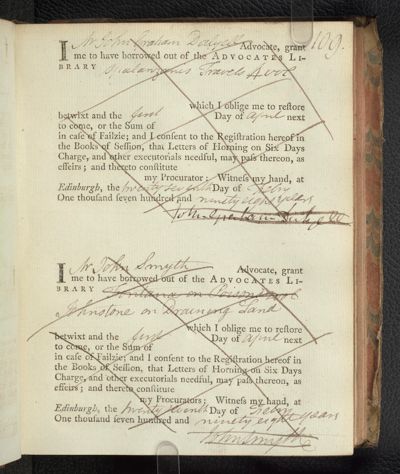 109.
I Mr John Graham Dalyell Advocate, grant
me to have borrowed out of the ADVOCATES LI-
BRARY Spalanzanis Travels 4 vol
which I oblige me to reſtore
betwixt and the first Day of April next
to come, or the Sum of
in caſe of Failzie; and I conſent to the Regiſtration hereof in
the Books of Seſſion, that Letters of Horning on Six Days
Charge, and other executorials needful, may paſs thereon, as
effeirs; and thereto conſtitute
my Procurator; Witneſs my hand, at
Edinburgh, the twenty seventh Day of Febry
One thouſand ſeven hundred and ninety eight years
John Graham Dalyell
I Mr John Smyth Advocate, grant
me to have borrowed out of the ADVOCATES LI-
BRARY Fontana on Poisons
Johnstone on Draining Land
which I oblige me to reſtore
betwixt and the first Day of April next
to come, or the Sum of
in caſe of Failzie; and I conſent to the Regiſtration hereof in
the Books of Seſſion, that Letters of Horning on Six Days
Charge, and other executorials needful, may paſs thereon, as
effeirs; and thereto conſtitute
my Procurator; Witneſs my hand, at
Edinburgh, the twenty seventh Day of Febry
One thouſand ſeven hundred and ninety eight years
John Smyth